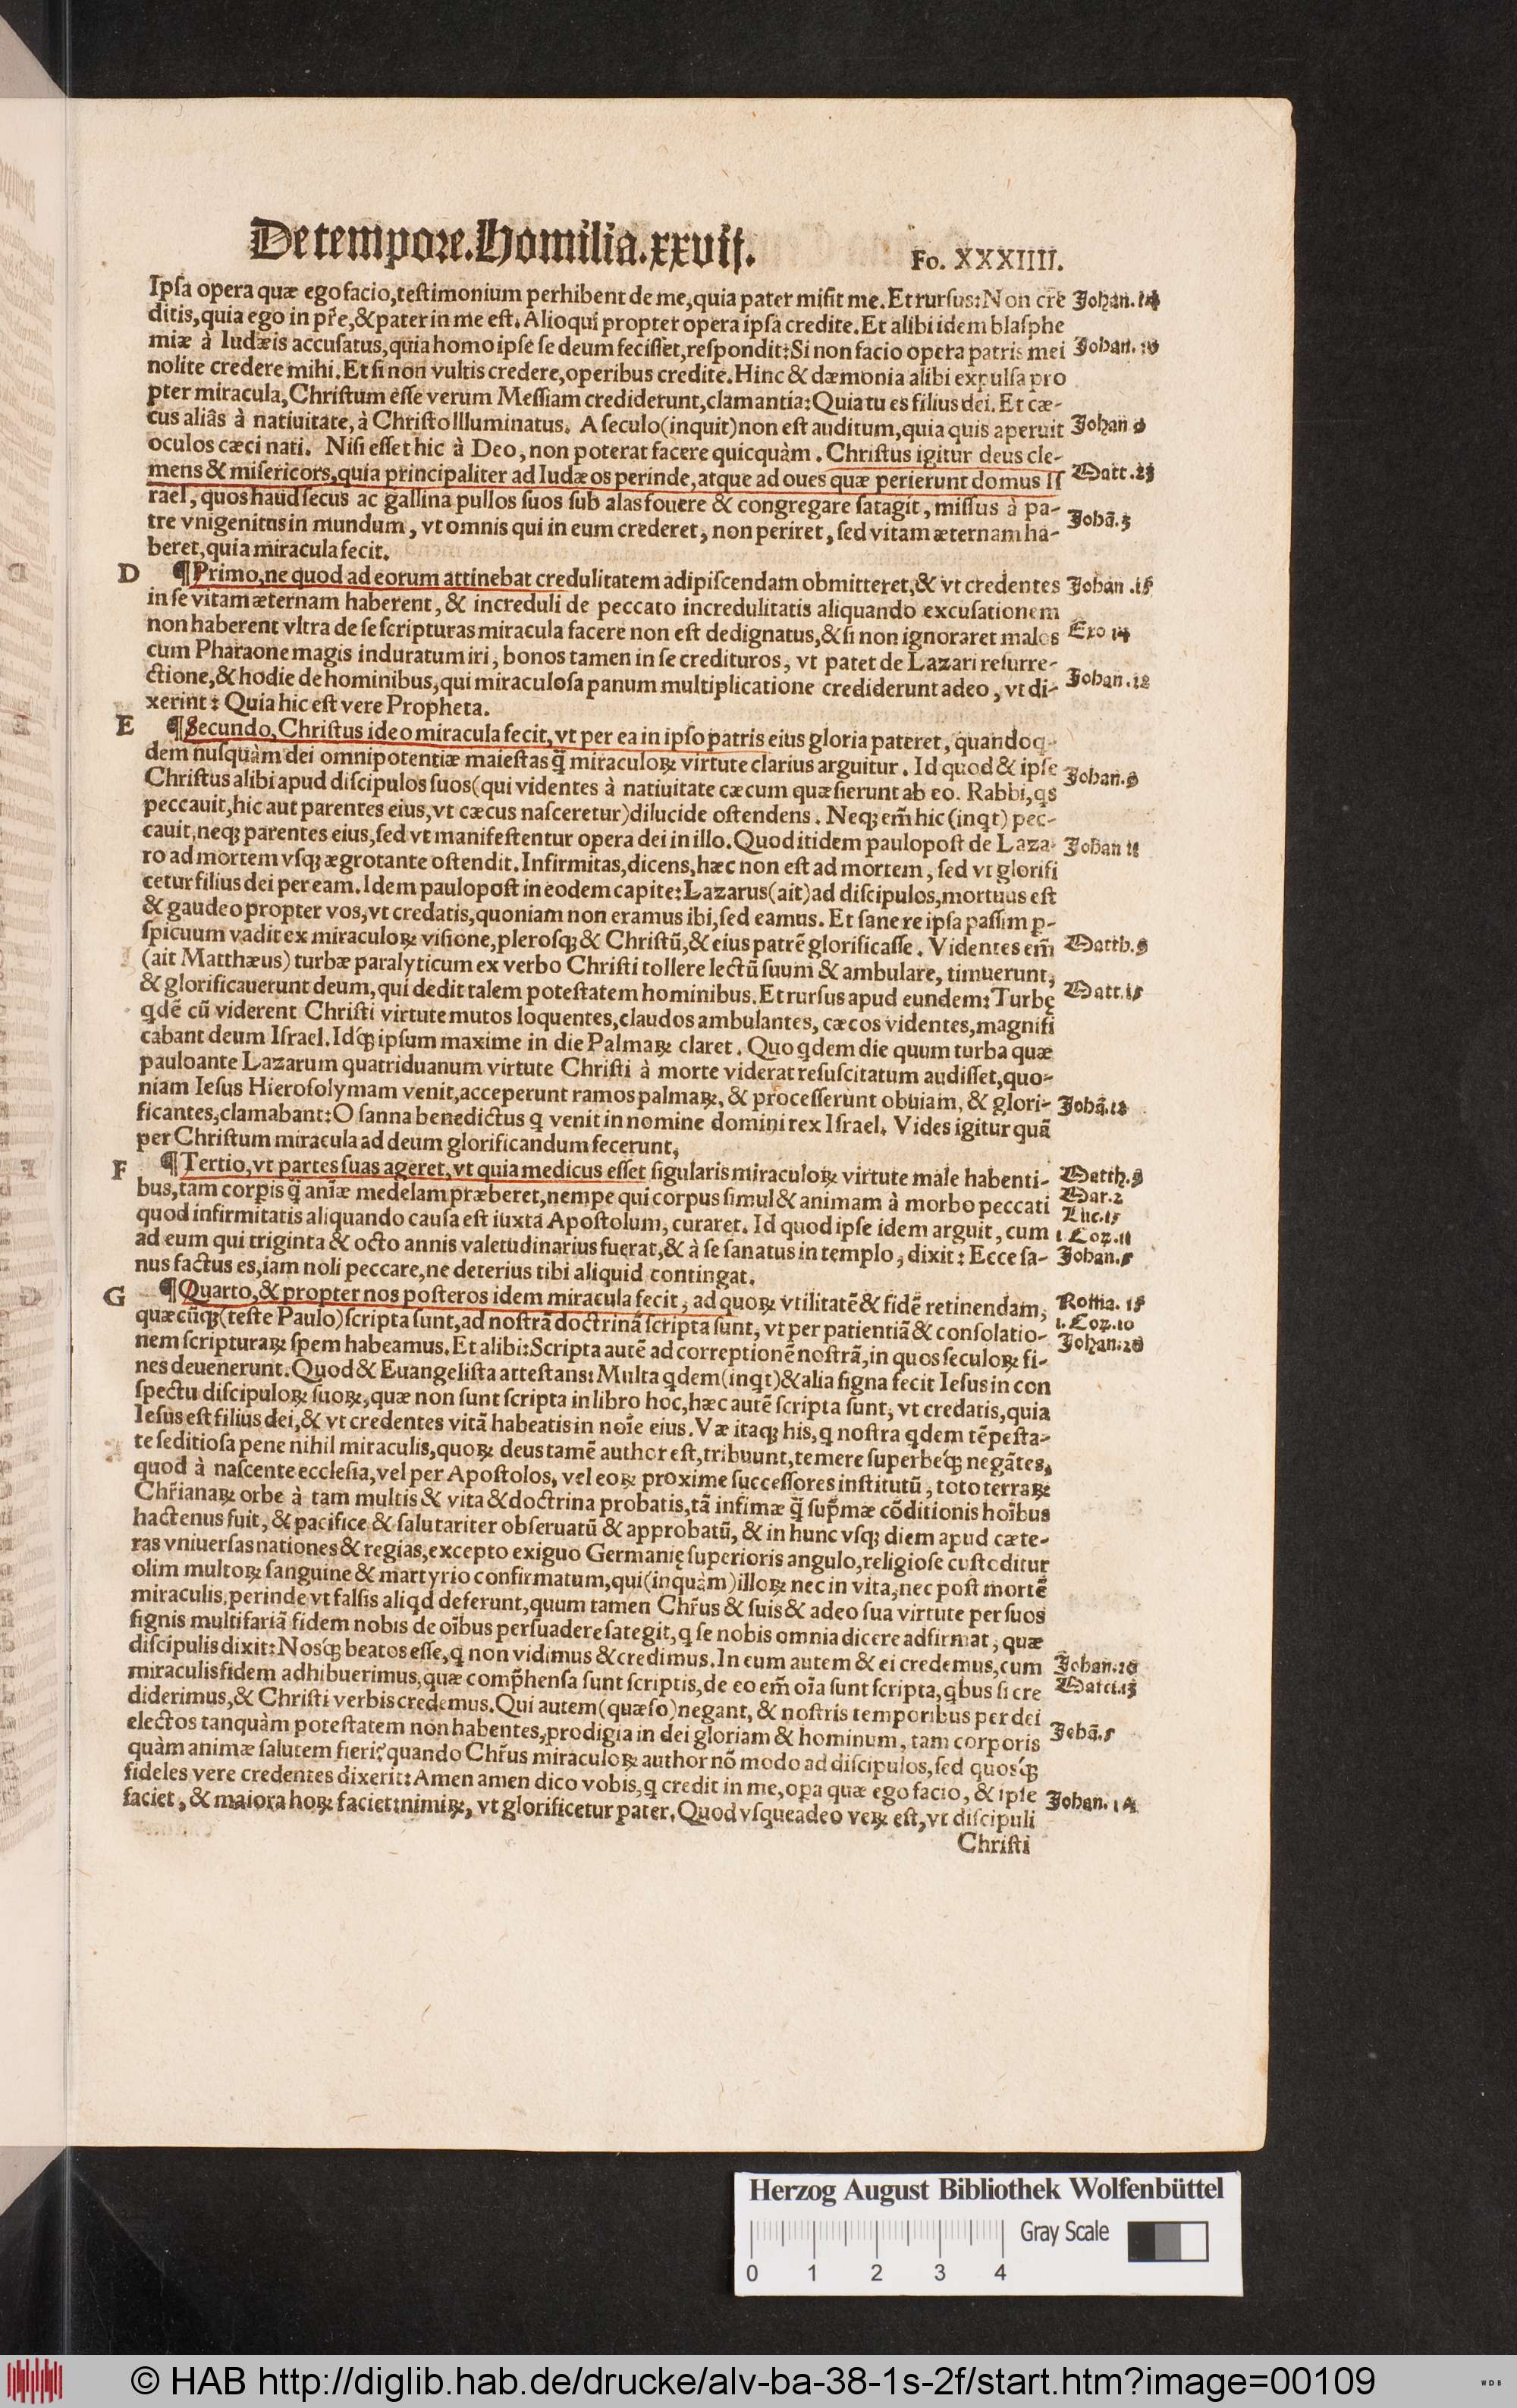 De tempore. Homilia. xxvij.
Fo. XXXIIII.
Ipſa opera quæ ego facio, teſtimonium perhibent de me, quia pater miſit me. Et rurſus: Non cre Johan. 14
ditis, quia ego in pr̃e, & pater in me eſt. Alioqui propter opera ipſa credite. Et alibi idem blaſphe
miæ à Iudæis accuſatus, quia homo ipſe ſe deum feciſſet, reſpondit: Si non facio opera patris mei Johan. 10
nolite credere mihi. Et ſi non vultis credere, operibus credite. Hinc & dæmonia alibi expulſa pro
pter miracula, Chriſtum eſſe verum Meſſiam crediderunt, clamantia: Quia tu es filius dei. Et cæ-
cus aliâs à natiuitate, à Chriſto Illuminatus. A ſeculo (inquit) non eſt auditum, quia quis aperuit Johan 9
oculos cæci nati. Niſi eſſet hic à Deo, non poterat facere quicquàm. Chriſtus igitur deus cle-
mens & miſericors, quia principaliter ad Iudæos perinde, atque ad oues quæ perierunt domus Iſ Matt. 23
rael, quos haud ſecus ac gallina pullos ſuos ſub alas fouere & congregare ſatagit, miſſus à pa-
tre vnigenitus in mundum, vt omnis qui in eum crederet, non periret, ſed vitam æternam ha- Johã. 3
beret, quia miracula fecit.
D ¶ Primo, ne quod ad eorum attinebat credulitatem adipiſcendam obmitteret, & vt credentes Johan. 15
in ſe vitam æternam haberent, & increduli de peccato incredulitatis aliquando excuſationem
non haberent vltra de ſe ſcripturas miracula facere non eſt dedignatus, & ſi non ignoraret malos Exo 14
cum Pharaone magis induratum iri, bonos tamen in ſe credituros, vt patet de Lazari reſurre-
ctione, & hodie de hominibus, qui miraculoſa panum multiplicatione crediderunt adeo, vt di- Johan. 12
xerint: Quia hic eſt vere Propheta.
E ¶ Secundo, Chriſtus ideo miracula fecit, vt per ea in ipſo patris eius gloria pateret, quandoq-
dem nuſquàm dei omnipotentiæ maieſtas q̃ miraculoꝝ virtute clarius arguitur. Id quod & ipſe
Chriſtus alibi apud diſcipulos ſuos (qui videntes à natiuitate cæcum quæſierunt ab eo. Rabbi, qs Johan. 9
peccauit, hic aut parentes eius, vt cæcus naſceretur) dilucide oſtendens. Neqꝫ em̃ hic (inqt) pec-
cauit, neqꝫ parentes eius, ſed vt manifeſtentur opera dei in illo. Quod itidem paulopoſt de Laza- Johan 11
ro ad mortem vſqꝫ ægrotante oſtendit. Infirmitas, dicens, hæc non eſt ad mortem, ſed vt glorifi
cetur filius dei per eam. Idem paulopoſt in eodem capite: Lazarus (ait) ad diſcipulos, mortuus eſt
& gaudeo propter vos, vt credatis, quoniam non eramus ibi, ſed eamus. Et ſane re ipſa paſſim ꝑ-
ſpicuum vadit ex miraculoꝝ viſione, pleroſqꝫ & Chriſtũ, & eius patrẽ glorificaſſe. Videntes em̃ Matth. 9
(ait Matthæus) turbæ paralyticum ex verbo Chriſti tollere lectũ ſuum & ambulare, timuerunt,
& glorificauerunt deum, qui dedit talem poteſtatem hominibus. Et rurſus apud eundem: Turbę Matt. 15
qdẽ cũ viderent Chriſti virtute mutos loquentes, claudos ambulantes, cæcos videntes, magnifi
cabant deum Iſrael. Idq́ꝫ ipſum maxime in die Palmaꝝ claret. Quo qdem die quum turba quæ
pauloante Lazarum quatriduanum virtute Chriſti à morte viderat reſuſcitatum audiſſet, quo-
niam Ieſus Hieroſolymam venit, acceperunt ramos palmaꝝ, & proceſſerunt obuiam, & glori- Johã. 12
ficantes, clamabant: O ſanna benedictus q venit in nomine domini rex Iſrael. Vides igitur quã
per Chriſtum miracula ad deum glorificandum fecerunt,
F ¶ Tertio, vt partes ſuas ageret, vt quia medicus eſſet ſigularis miraculoꝝ virtute male habenti- Matth. 9
bus, tam corꝑis q̃ aĩæ medelam præberet, nempe qui corpus ſimul & animam à morbo peccati Mar. 2 Luc. 15
quod infirmitatis aliquando cauſa eſt iuxta Apoſtolum, curaret. Id quod ipſe idem arguit, cum 1 Cor. 11
ad eum qui triginta & octo annis valetudinarius fuerat, & à ſe ſanatus in templo, dixit: Ecce ſa- Johan. 5
nus factus es, iam noli peccare, ne deterius tibi aliquid contingat.
G ¶ Quarto, & propter nos poſteros idem miracula fecit, ad quoꝝ vtilitatẽ & fidẽ retinendam, Roma. 15
quæcũqꝫ (teſte Paulo) ſcripta ſunt, ad noſtrã doctrinã ſcripta ſunt, vt per patientiã & conſolatio- 1. Cor. 10
nem ſcripturaꝝ ſpem habeamus. Et alibi: Scripta autẽ ad correptionẽ noſtrã, in quos ſeculoꝝ fi- Johan. 20
nes deuenerunt. Quod & Euangeliſta atteſtans: Multa qdem (inqt) & alia ſigna fecit Ieſus in con
ſpectu diſcipuloꝝ ſuoꝝ, quæ non ſunt ſcripta in libro hoc, hæc autẽ ſcripta ſunt, vt credatis, quia
Ieſus eſt filius dei, & vt credentes vitã habeatis in noĩe eius. Væ itaqꝫ his, q noſtra qdem tẽpeſta-
te ſeditioſa pene nihil miraculis, quoꝝ deus tamẽ author eſt, tribuunt, temere ſuperbeq́ꝫ negãtes,
quod à naſcente eccleſia, vel per Apoſtolos, vel eoꝝ proxime ſucceſſores inſtitutũ, toto terraꝝ
Chr̃ianaꝝ orbe à tam multis & vita & doctrina probatis, tã infimæ q̃ ſup̃mæ cõditionis hoĩbus
hactenus fuit, & pacifice & ſalutariter obſeruatũ & approbatũ, & in hunc vſqꝫ diem apud cæte-
ras vniuerſas nationes & regias, excepto exiguo Germanię ſuperioris angulo, religioſe cuſtoditur
olim multoꝝ ſanguine & martyrio confirmatum, qui (inquàm) illoꝝ nec in vita, nec poſt mortẽ
miraculis, perinde vt falſis aliqd deferunt, quum tamen Chr̃us & ſuis & adeo ſua virtute per ſuos
ſignis multifariã fidem nobis de oĩbus perſuadere ſategit, q ſe nobis omnia dicere adfirmat, quæ
diſcipulis dixit: Noſq́ꝫ beatos eſſe, q non vidimus & credimus. In eum autem & ei credemus, cum Johan. 20
miraculis fidem adhibuerimus, quæ comp̃henſa ſunt ſcriptis, de eo em̃ oĩa ſunt ſcripta, qbus ſi cre Marci. 13
diderimus, & Chriſti verbis credemus. Qui autem (quæſo) negant, & noſtris temporibus per dei
electos tanquàm poteſtatem non habentes, prodigia in dei gloriam & hominum, tam corporis Johã. 5
quàm animæ ſalutem fieri? quando Chr̃us miraculoꝝ author nõ modo ad diſcipulos, ſed quoſq́ꝫ
fideles vere credentes dixerit: Amen amen dico vobis, q credit in me, oꝑa quæ ego facio, & ipſe Johan. 14
faciet, & maiora hoꝝ faciet: nimiꝝ, vt glorificetur pater. Quod vſqueadeo veꝝ eſt, vt diſcipuli
Chriſti
Herzog August Bibliothek Wolfenbüttel
Gray Scale
0 1 2 3 4
© HAB http://diglib.hab.de/drucke/alv-ba-38-1s-2f/start.htm?image=00109
WDB